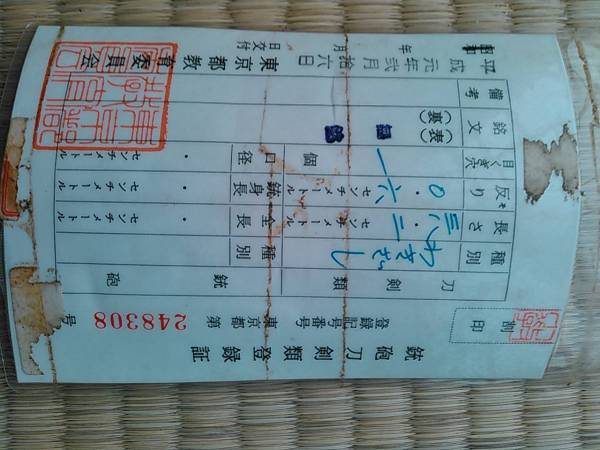 銃砲刀剣類登録証
割印
登録記号番号 東京都第 248308 号
刀剣類
銃砲
種別 わきざし
種別
長さ 三八・二 センチメートル
全長 ・ センチメートル
反り 0・六 センチメートル
銃身長 ・ センチメートル
目くぎ穴 一 個
口径 ・ センチメートル
銘文 (表)
(裏)
備考
平成 元年 弐月 拾六日交付
東京都教育委員会